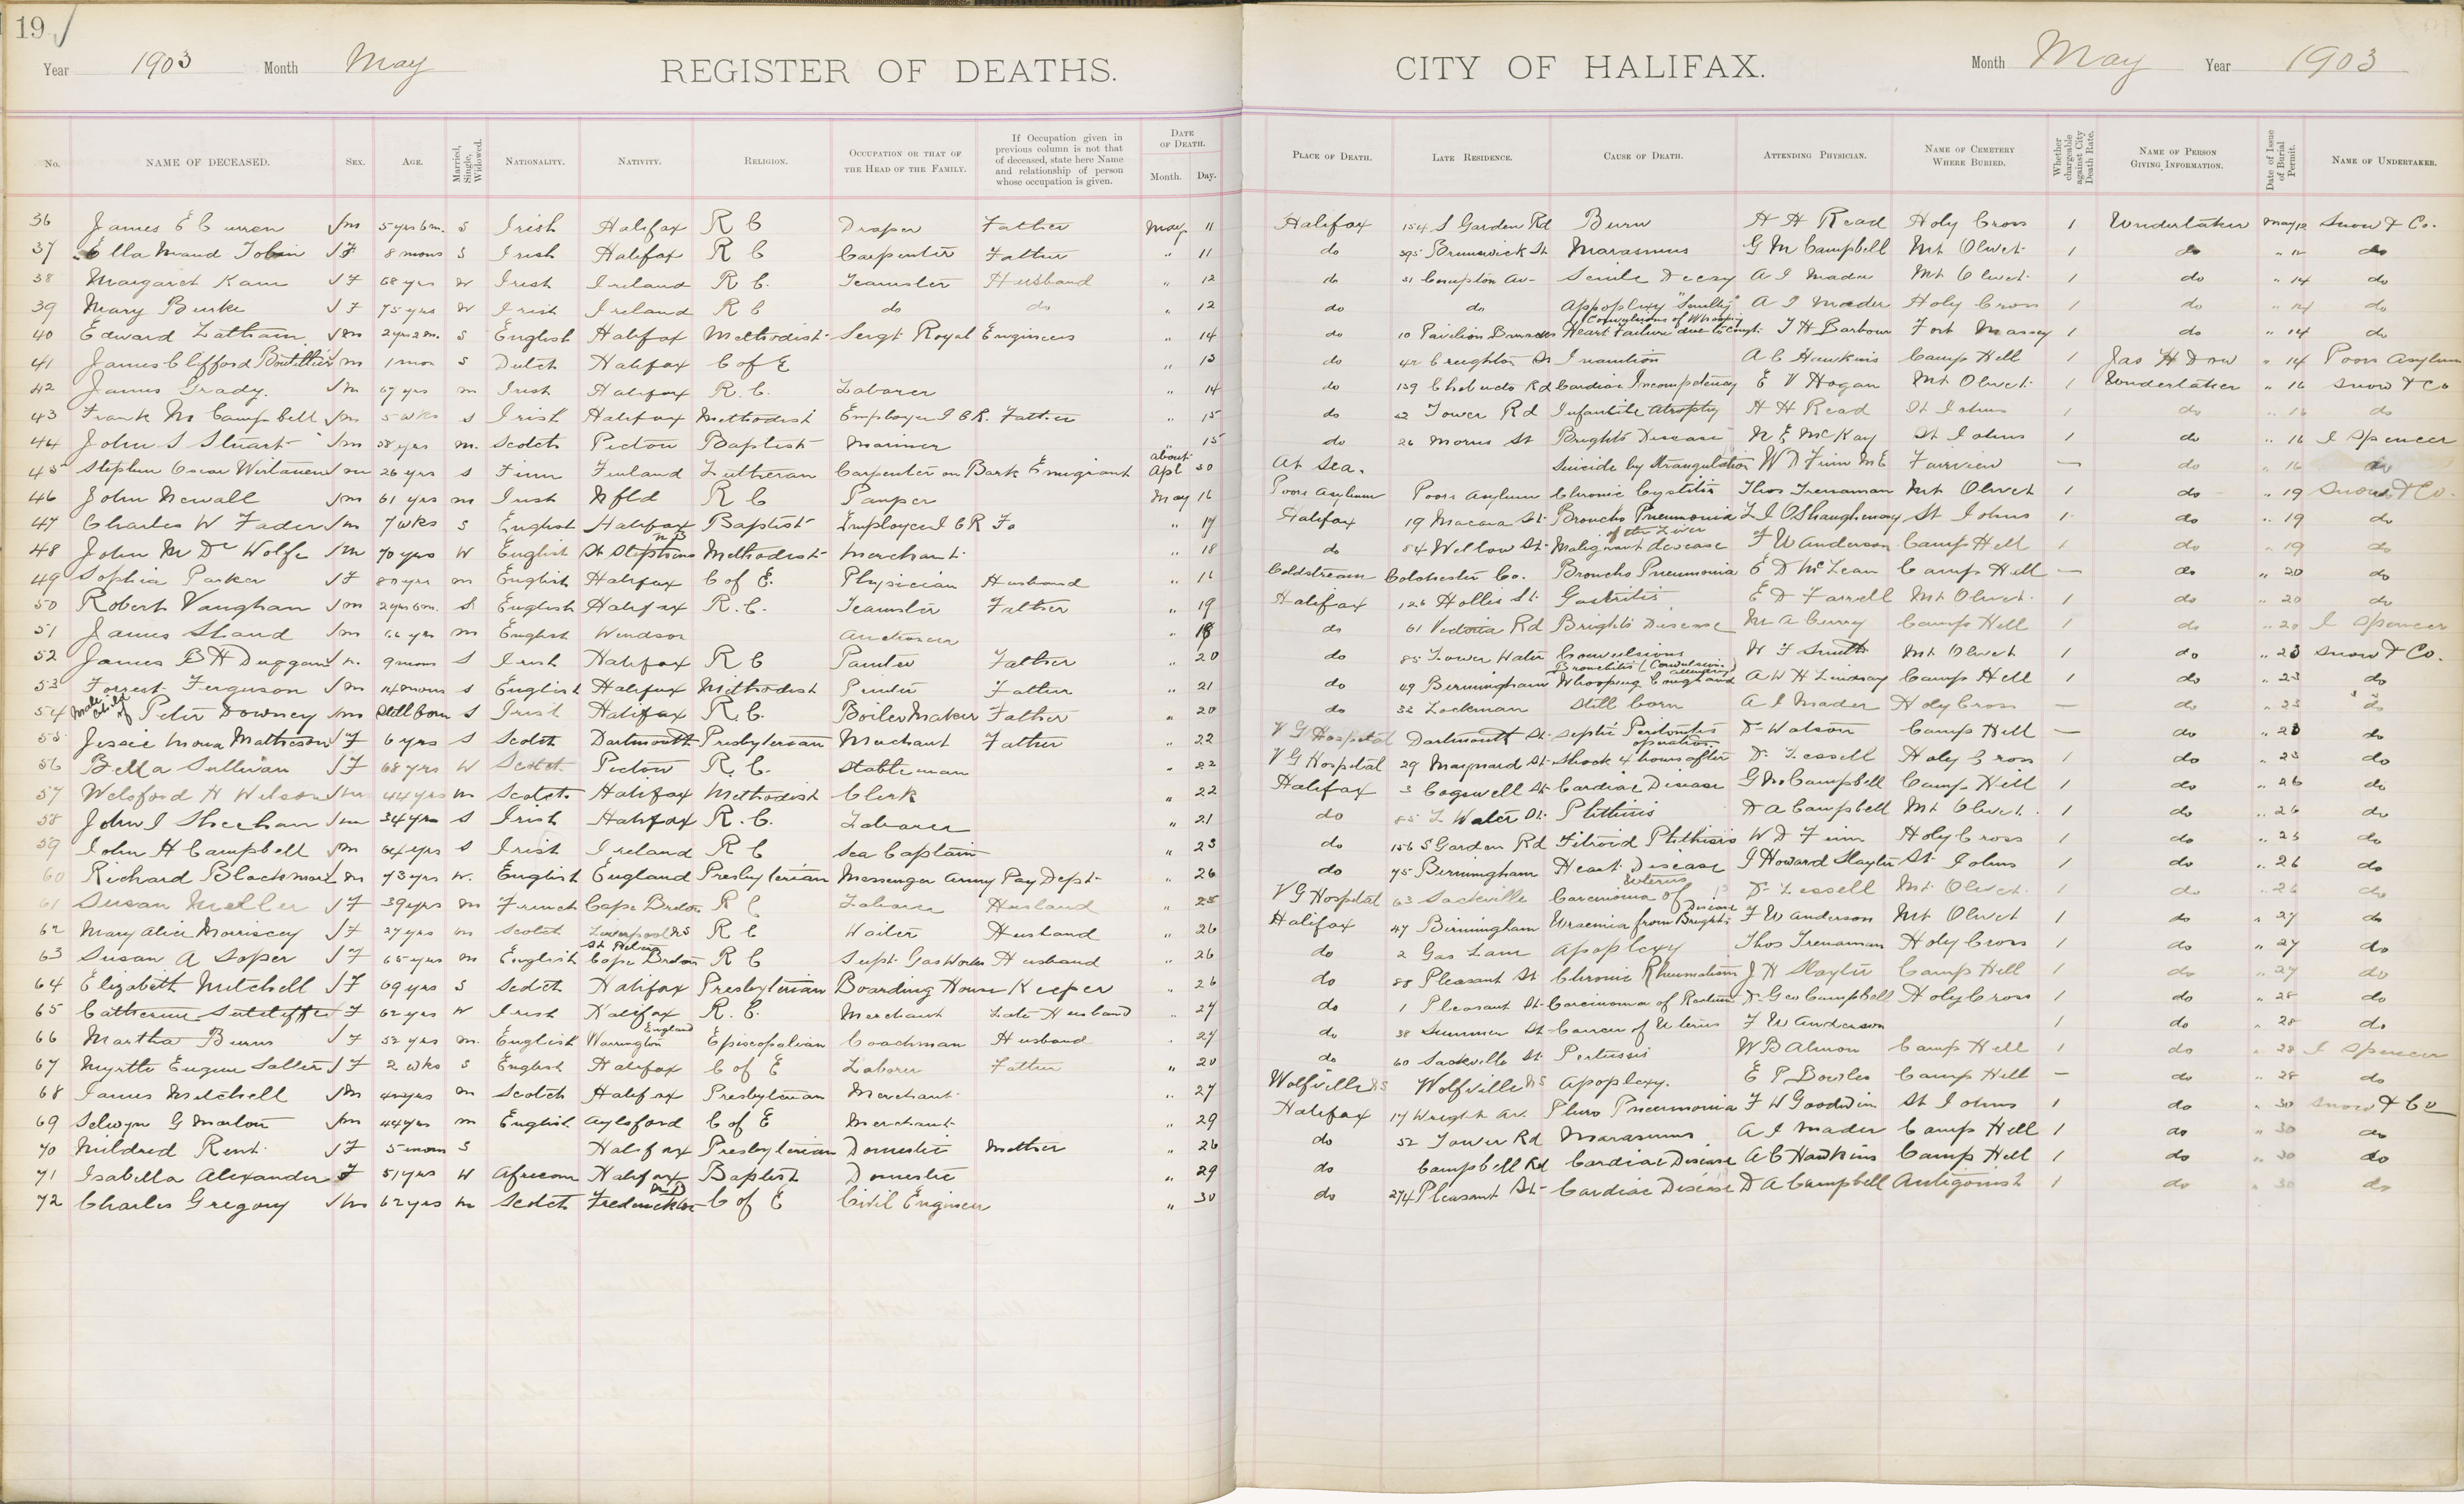 19
Year 1903 Month May REGISTER OF DEATHS. CITY OF HALIFAX. Month May Year 1903
No. NAME OF DECEASED. SEX. AGE. Married, Single, Widowed. NATIONALITY. NATIVITY. RELIGION. OCCUPATION OR THAT OF THE HEAD OF THE FAMILY. If Occupation given in previous column is not that of deceased, state here Name and relationship of person whose occupation is given. DATE OF DEATH. Month. Day. PLACE OF DEATH. LATE RESIDENCE. CAUSE OF DEATH. ATTENDING PHYSICIAN. NAME OF CEMETERY WHERE BURIED. Whether chargeable against City Death Rate. NAME OF PERSON GIVING INFORMATION. Date of Issue of Burial Permit. NAME OF UNDERTAKER.
36 James E Curren m 5 yrs 6 m. S Irish Halifax R C Draper Father May 11 Halifax 154 S Garden Rd Burn H H Read Holy Cross 1 Undertaker May 12 Snow & Co.
37 Ella Maud Tobin F 8 mons S Irish Halifax R C Carpenter Father " 11 do 395 Brunswick St Marasmus G M Campbell Mt Olivet 1 do " 12 do
38 Margaret Kane F 68 yrs W Irish Ireland R C. Teamster Husband " 12 do 31 Compton Av- Senile Decay A I Mader Mt Olivet 1 do " 14 do
39 Mary Burke F 75 yrs W Irish Ireland R C do do " 12 do do Apoplexy "Senility" A I Mader Holy Cross 1 do " 14 do
40 Edward Latham m 2 yrs 2 m. S English Halifax Methodist Sergt Royal Engineers " 14 do 10 Pavilion Barracks Heart Failure due to Convulsions of Whooping Cough T H Barbour Fort Massey 1 do " 14 do
41 James Clifford Boutillier m 1 mon S Dutch Halifax C of E " 13 do 42 Creighton St Inanition A C Hawkins Camp Hill 1 Jas H Dow " 14 Poors Asylum
42 James Grady. m 67 yrs m Irish Halifax R. C. Laborer " 14 do 139 Chebucto Rd Cardiac Incompetency E V Hogan Mt Olivet 1 Undertaker " 16 Snow & Co
43 Frank M Campbell m 5 wks S Irish Halifax Methodist Employee I C R. Father " 15 do 62 Tower Rd Infantile Atrophy H H Read St Johns 1 do " 16 do
44 John S Stuart m 58 yrs m. Scotch Pictou Baptist Mariner " 15 do 26 Morris St Brights Disease N E McKay St Johns 1 do " 16 I Spencer
45 Stephen Oscar Wirtanen m 26 yrs S Finn Finland Lutheran Carpenter on Bark Emigrant about Apl 30 At Sea. Suicide by Strangulation W D Finn M E Fairview — do " 16 do
46 John Newall m 61 yrs m Irish Nfld R C Pauper May 16 Poors Asylum Poors Asylum Chronic Cystitis Thos Trenaman Mt Olivet 1 do " 19 Snow & Co.
47 Charles W Fader m 7 wks S English Halifax Baptist Employee I C R Fa " 17 Halifax 19 Macara St Broncho Pneumonia L I O'Shaughnessy St Johns 1 do " 19 do
48 John M De Wolfe m 70 yrs W English St Stephens N B Methodist Merchant " 18 do 84 Willow St Malignant disease of the Liver F W Anderson Camp Hill 1 do " 19 do
49 Sophia Parker F 80 yrs m English Halifax C of E. Physician Husband " 16 Coldstream Colchester Co. Broncho Pneumonia E D McLean Camp Hill — do " 20 do
50 Robert Vaughan m 2 yrs 6 m. S English Halifax R. C. Teamster Father " 19 Halifax 126 Hollis St Gastritis E D Farrell Mt Olivet 1 do " 20 do
51 James Shand m 66 yrs m English Windsor Auctioneer " 18 do 61 Victoria Rd Brights Disease M A Curry Camp Hill 1 do " 20 I Spencer
52 James B H Duggan m. 9 mons S Irish Halifax R C Painter Father " 20 do 85 Lower Water Convulsions W F Smith Mt Olivet 1 do " 23 Snow & Co.
53 Forrest Ferguson m 14 mons S English Halifax Methodist Printer Father " 21 do 49 Birmingham Whooping Cough and Bronchitis (Convulsions) A W H Lindsay Camp Hill 1 do " 23 do
54 Male Child of Peter Downey m Still born S Irish Halifax R. C. Boiler Maker Father " 20 do 32 Lockman Still born A I Mader Holy Cross — do " 23 do
55 Jessie Mona Matheson F 6 yrs S Scotch Dartmouth Presbyterian Merchant Father " 22 V G Hospital Dartmouth St Septic Peritonitis Dr Watson Camp Hill — do " 23 do
56 Bella Sullivan F 68 yrs W Scotch Pictou R. C. Stableman " 22 V G Hospital 29 Maynard St Shock 4 hours after operation Dr Lessell Holy Cross 1 do " 25 do
57 Welsford H Wilson m 44 yrs m Scotch Halifax Methodist Clerk " 22 Halifax 3 Cogswell St Cardiac Disease G M Campbell Camp Hill 1 do " 26 do
58 John J Sheehan m 34 yrs S Irish Halifax R. C. Laborer " 21 do 85 L Water St Phthisis D A Campbell Mt Olivet 1 do " 26 do
59 John H Campbell m 64 yrs S Irish Ireland R C Sea Captain " 23 do 156 S Garden Rd Fibroid Phthisis W D Finn Holy Cross 1 do " 25 do
60 Richard Blackmore m 73 yrs W. English England Presbyterian Messenger Army Pay Dept " 26 do 75 Birmingham Heart Disease J Howard Slayter St Johns 1 do " 26 do
61 Susan Meller F 39 yrs m French Cape Breton R C Laborer Husband " 25 V G Hospital 63 Sackville Carcinoma of Uterus Dr Lessell Mt Olivet 1 do " 26 do
62 Mary Alice Morriscey F 27 yrs m Scotch Liverpool N S R C Waiter Husband " 26 Halifax 47 Birmingham Uraemia from Brights Disease F W Anderson Mt Olivet 1 do " 27 do
63 Susan A Soper F 65 yrs m English St Peters Cape Breton R C Supt Gas Works Husband " 26 do 2 Gas Lane Apoplexy Thos Trenaman Holy Cross 1 do " 27 do
64 Elizabeth Mitchell F 69 yrs S Scotch Halifax Presbyterian Boarding House Keeper " 26 do 88 Pleasant St Chronic Rheumatism J H Slayter Camp Hill 1 do " 27 do
65 Catherine Sutcliffe F 62 yrs W Irish Halifax R. C. Merchant Late Husband " 27 do 1 Pleasant St Carcinoma of Rectum Dr Geo Campbell Holy Cross 1 do " 28 do
66 Martha Burns F 52 yrs m. English Warrington England Episcopalian Coachman Husband " 27 do 38 Summer St Cancer of Uterus F W Anderson 1 do " 28 do
67 Myrtle Eugene Salter F 2 wks S English Halifax C of E Laborer Father " 20 do 60 Sackville St Pertussis W B Almon Camp Hill 1 do " 28 I Spencer
68 James Mitchell m yrs m Scotch Halifax Presbyterian Merchant " 27 Wolfville N S Wolfville N S Apoplexy. E P Bowles Camp Hill — do " 28 do
69 Selwyn G Marlow m 44 yrs m English Aylsford C of E Merchant " 29 Halifax 17 Wright Av. Pluro Pneumonia F W Goodwin St Johns 1 do " 30 Snow & Co
70 Mildred Rent F 5 mons S Halifax Presbyterian Domestic Mother " 26 do 52 Tower Rd Marasmus A I Mader Camp Hill 1 do " 30 do
71 Isabella Alexander F 51 yrs W African Halifax Baptist Domestic " 29 do Campbell Rd Cardiac Disease A C Hawkins Camp Hill 1 do " 30 do
72 Charles Gregory m 62 yrs m Scotch Fredericton N B C of E Civil Engineer " 30 do 274 Pleasant St Cardiac Disease D A Campbell Antigonish 1 do " 30 do